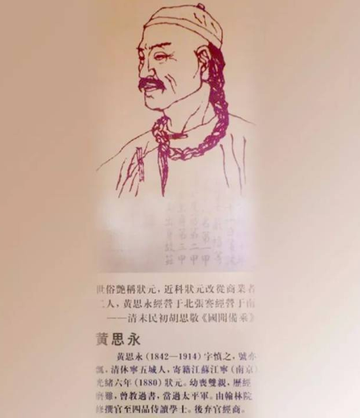 世俗艷稱狀元，近科狀元改從商業者
二人，黃思永經營于北張謇經營于南
——清末民初胡思敬《國聞備乘》
黃思永
黃思永（1842—1914）字慎之，號亦
瓢，清休寧五城人，寄籍江蘇江寧（南京）
光緒六年（1880）狀元。幼喪雙親，歷經
磨難，曾教過書，當過太平軍。由翰林院
修撰官至四品侍讀學士。後弃官經商。